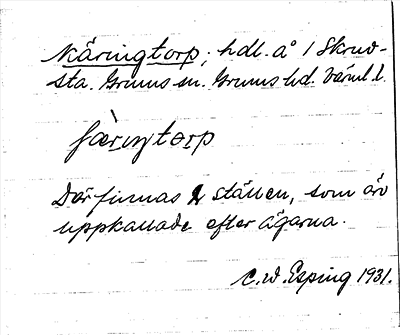 Käringtorp, hdl. å 1 Skruv-
sta. Grums sn. Grums hd. Värml. l.
færiŋtorp
Där finnas 2 ställen, som äro
uppkallade efter ägarna.
C.W. Esping 1931.